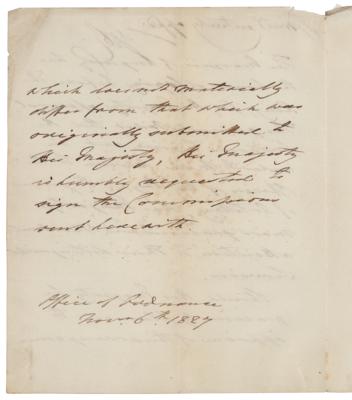 which does not materially
differ from that which was
originally submitted to
His Majesty, His Majesty
is humbly requested to
sign the Commissions
sent herewith.
Office of Ordnance
Novr 6th 1827